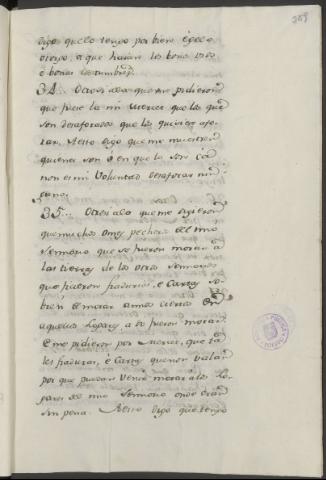 digo que lo tengo por bien è que lo
otorgo, è que hayan los bonos usos
è bonas costumbres
34... Otrosi à lo que me pidieron
que fuese la mi merced que los que
son desaforados que los quisiese afo-
rar, à esto digo que me muestren
quienes son è en que lo son ca
non es mi voluntad desaforar nin-
guno.
35... Otrosi à lo que me digieron
que muchos omes pecheros del mio
Señorio que se fueron morar à
las tierras de los otros Señorios
que ficieron fiadurias, è cartas
de morar años ciertos en
aquellos Logares à do fueron morar
è me pidieron por merced, que ta-
les fiaduras, è cartas que non valan
por que puedan venir morar à los Lo-
gares del mio Señorio onde eran
sin pena. A esto digo que tengo